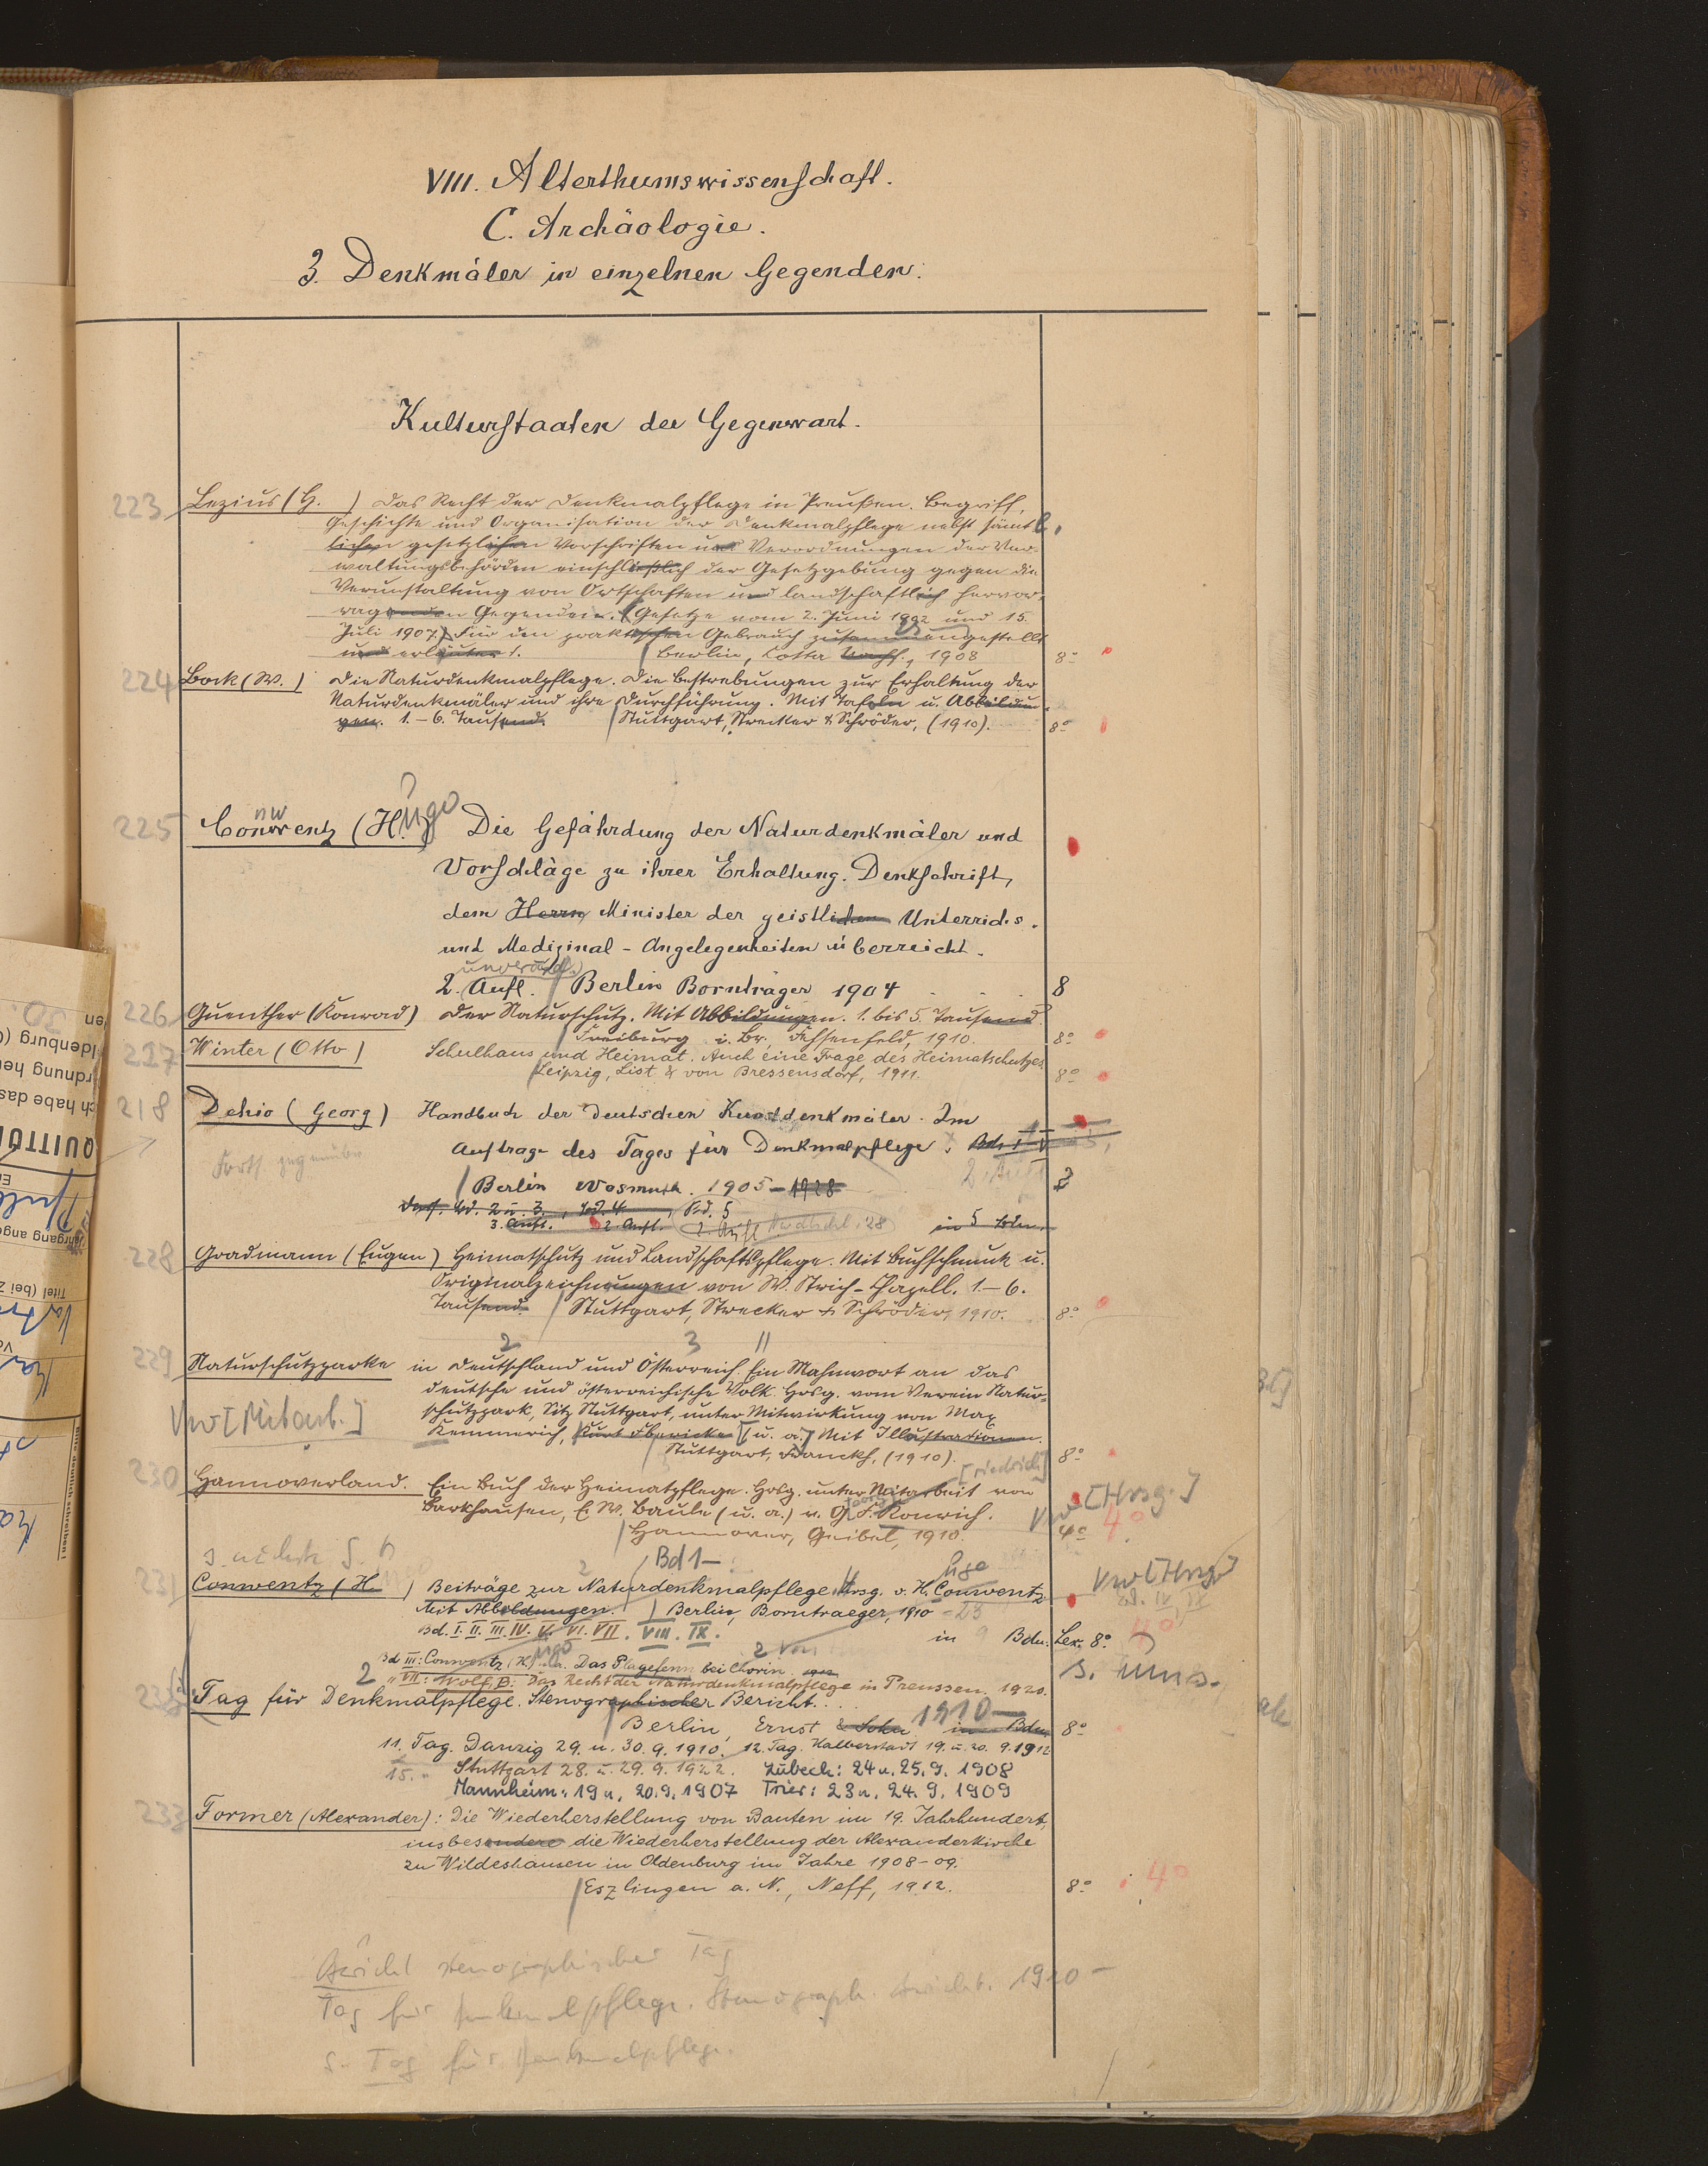 VIII. Alterthumswissenschaft.
C. Archäologie.
3. Denkmäler in einzelnen Gegenden.
Kulturstaaten der Gegenwart.
223 Lezius (H. ) Das Recht der Denkmalpflege in Preußen. Begriff,
Geschichte und Organisation der Denkmalpflege nebst sämt-
lichen gesetzlichen Vorschriften und Verordnungen der Ver-
waltungsbehörden einschließlich der Gesetzgebung gegen die
Verunstaltung von Ortschaften und landschaftlich hervor-
ragenden Gegenden. (Gesetze vom 2. Juni 1902 und 15.
Juli 1907.) Für den praktischen Gebrauch zusammengestellt
und erläutert. Berlin, Cotta Nachf., 1908 8°
224 Bock (W. ) Die Naturdenkmalpflege. Die Bestrebungen zur Erhaltung der
Naturdenkmäler und ihre Durchführung. Mit Tafeln u. Abbildun-
gen. 1.-6. Tausend. Stuttgart, Strecker & Schröder, (1910). 8°
225 Conwentz (Hugo) Die Gefährdung der Naturdenkmäler und
Vorschläge zu ihrer Erhaltung. Denkschrift,
dem Herrn Minister der geistlichen Unterrichts-
und Medizinal-Angelegenheiten überreicht.
unveränd.
2. Aufl. Berlin Bornträger 1904 8
226 Guenther (Konrad) Der Naturschutz. Mit Abbildungen. 1. bis 5. Tausend.
Freiburg i. Br. Fehsenfeld, 1910. 8°
227 Winter (Otto ) Schulhaus und Heimat. Auch eine Frage des Heimatschutzes.
Leipzig, List & von Bressensdorf, 1911. 8°
218 Dehio (Georg) Handbuch der Deutschen Kunstdenkmäler. Im
Auftrage des Tages für Denkmalpflege. Bd. I-V
Forts. gegenüber
2. Aufl.
Berlin Wasmuth. 1905-1928
Bd. 2 u. 3., Bd. 4., Bd. 5
3. Aufl. 2. Aufl. 2. Aufl. 28 in 5 Bdn.
228 Gradmann (Eugen) Heimatschutz und Landschaftspflege. Mit Buchschmuck u.
Originalzeichnungen von W. Strich-Chapell. 1-6.
Tausend. Stuttgart, Strecker & Schröder, 1910. 8°
2 3 11
229 Naturschutzparke in Deutschland und Österreich. Ein Mahnwort an das
deutsche und österreichische Volk. Hrsg. vom Verein Natur-
schutzpark, Sitz Stuttgart, unter Mitwirkung von Max
Vw [Mitarb.] Kemmerich, Kurt Floericke [u. a.] Mit Illustrationen.
Stuttgart, Franckh, (1910). 8°
[riedrich]
230 Hannoverland. Ein Buch der Heimatpflege. Hrsg. unter Mitarbeit von
Barkhausen, E. W. Baule (u. a.) v. G. F. Konrich. Vw [Hrsg.]
Hannover, Geibel, 1910. 4° 4°
Bd 1-
231 Conwentz (H. ) Beiträge zur Naturdenkmalpflege. Hrsg. v. H. Conwentz Vw [Hrsg]
Mit Abbildungen. Berlin, Borntraeger, 1910 - 23
Bd. I. II. III. IV. V. VI. VII. VIII. IX. in 9 Bdn. Lex. 8°
Bd III: Conwentz, (H.) u.a. Das Plagefenn bei Chorin. 1912
" VII: Wolf, B: Das Recht der Naturdenkmalpflege in Preussen. 1920.
Tag für Denkmalpflege. Stenographischer Bericht.
Berlin, Ernst & Sohn 1910- in Bdn. 8°
11. Tag. Danzig 29. u. 30. 9. 1910. 12. Tag. Halberstadt 19. u. 20. 9. 1912
15. " Stuttgart 28. u. 29. 9. 1922. Lübeck: 24 u. 25. 9. 1908
Mannheim: 19 u. 20. 9. 1907 Trier: 23 u. 24. 9. 1909
233 Former (Alexander): Die Wiederherstellung von Bauten im 19. Jahrhundert,
insbesondere die Wiederherstellung der Alexanderkirche
zu Wildeshausen in Oldenburg im Jahre 1908-09.
Eszlingen a. N., Neff, 1912. 8° 4°
Bericht stenographischer Tag
Tag für Denkmalpflege. Stenograph. Bericht. 1910-
s. Tag für Denkmalpflege.